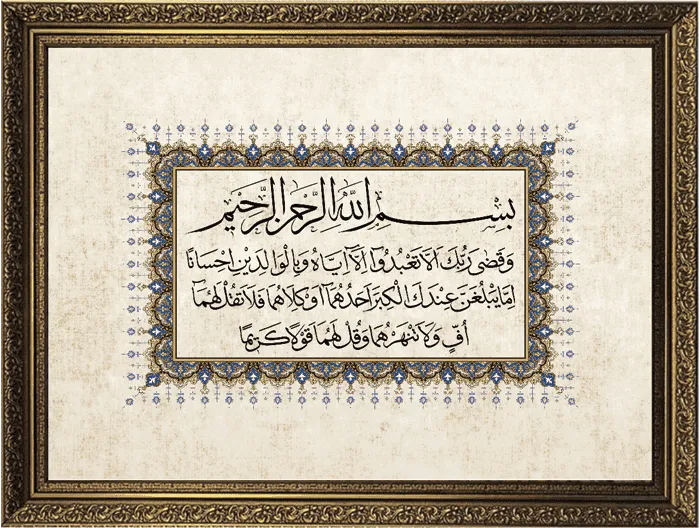 بسم الله الرحمن الرحيم
وَقَضٰى رَبُّكَ اَلَّا تَعْبُدُوٓا اِلَّآ اِيَّاهُ وَبِالْوَالِدَيْنِ اِحْسَانًا
اِمَّا يَبْلُغَنَّ عِنْدَكَ الْكِبَرَ اَحَدُهُمَآ اَوْ كِلَاهُمَا فَلَا تَقُلْ لَهُمَآ
اُفٍّ وَلَا تَنْهَرْهُمَا وَقُلْ لَهُمَا قَوْلًا كَرِيمًا